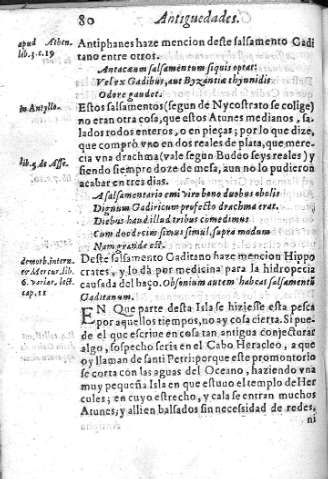 80 Antiguedades.
apud Athen.
lib. 3. c. 19
Antiphanes haze mencion deste salsamento Gadi
tano entre otros.
Antacaum salsamentum siquis optat:
Vel ex Gadibus, aut Byzantia thynnidis
Odore gaudet.
in Antyllo.
Estos salsamentos (segun de Nycostrato se colige)
no eran otra cosa, que estos Atunes medianos, sa,
lados todos enteros, o en pieças; por lo que dize,
que comprò vno en dos reales de plata, que mere-
cia vna drachma (vale segun Budeo seys reales) y
lib. 5. de Asse.
siendo siempre doze de mesa, aun no lo pudieron
acabar en tres dias.
A salsamentario emi viro bono duobus obolis
Dignum Gadiricum profecto drachma erat.
Diebus haud illud tribus comedimus
Cum duodecim simus simul, supra modum
Nam grande est.
Deste salsamento Gaditano haze mencion Hippo
crates, y lo dà por medicina para la hidropecia
causada del baço. Obsonium autem habeat salsamentũ
Gaditanum.
de morb. intern.
6. variar. lect.
cap. 11
EN Que parte desta Isla se hiziesse esta pesca
por aquellos tiempos, no ay cosa cierta. Si pue-
de el que escriue en cosa tan antigua conjecturar
algo, sospecho seria en el Cabo Heracleo, a que
oy llaman de santi Petri: porque este promontorio
se corta con las aguas del Oceano, haziendo vna
muy pequeña Isla en que estuuo el templo de Her
cules; en cuyo estrecho, y cala se entran muchos
Atunes; y alli en balsados sin necesidad de redes,
ni